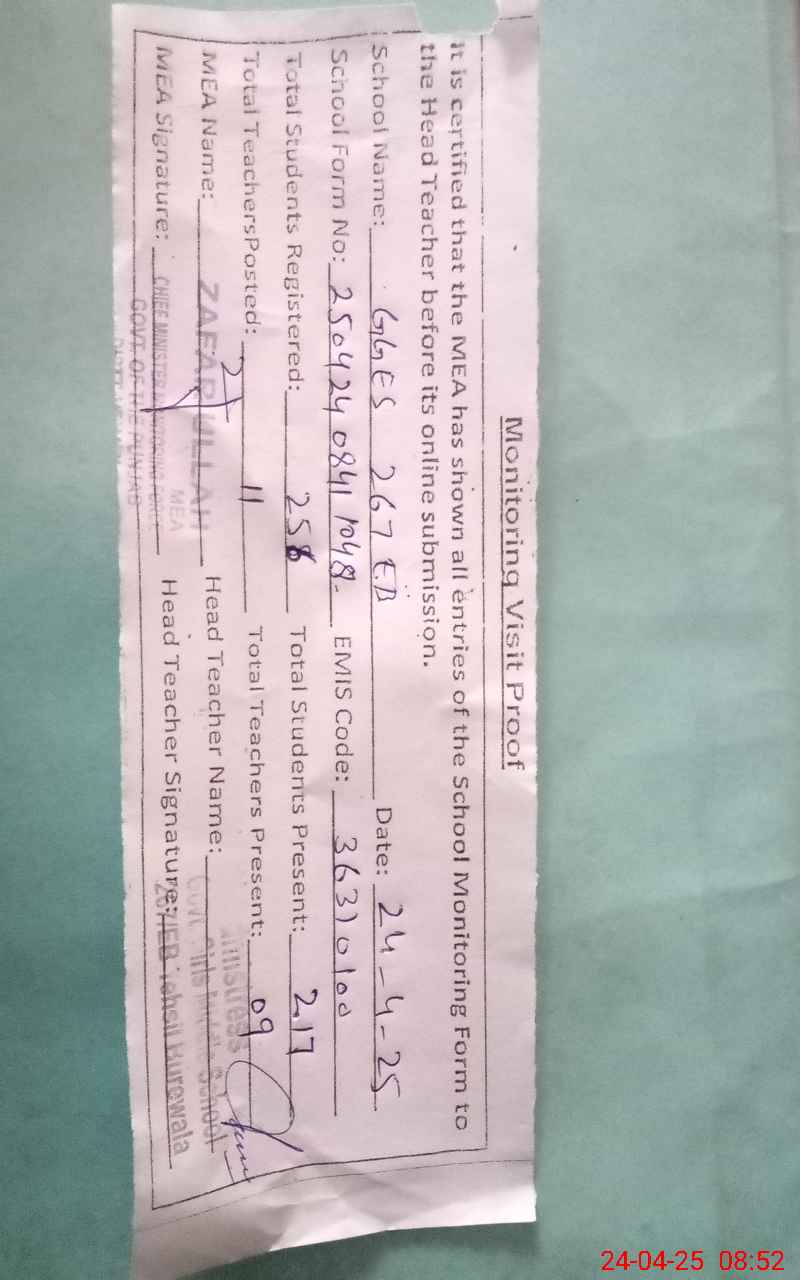 Monitoring Visit Proof
It is certified that the MEA has shown all entries of the School Monitoring Form to
the Head Teacher before its online submission.
School Name: GGES 267 EB Date: 24-4-25
School Form No: 250424 0841 1048- EMIS Code: 36310100
Total Students Registered: 258 Total Students Present: 217
Total TeachersPosted: 11 Total Teachers Present: 09
MEA Name: ZAFAR ULLAH Head Teacher Name:
MEA
MEA Signature: Head Teacher Signature:
CHIEF MINISTER MONITORING FORCE
GOVT. OF THE PUNJAB
Govt. Girls Middle School
267/EB Tehsil Burewala
24-04-25 08:52